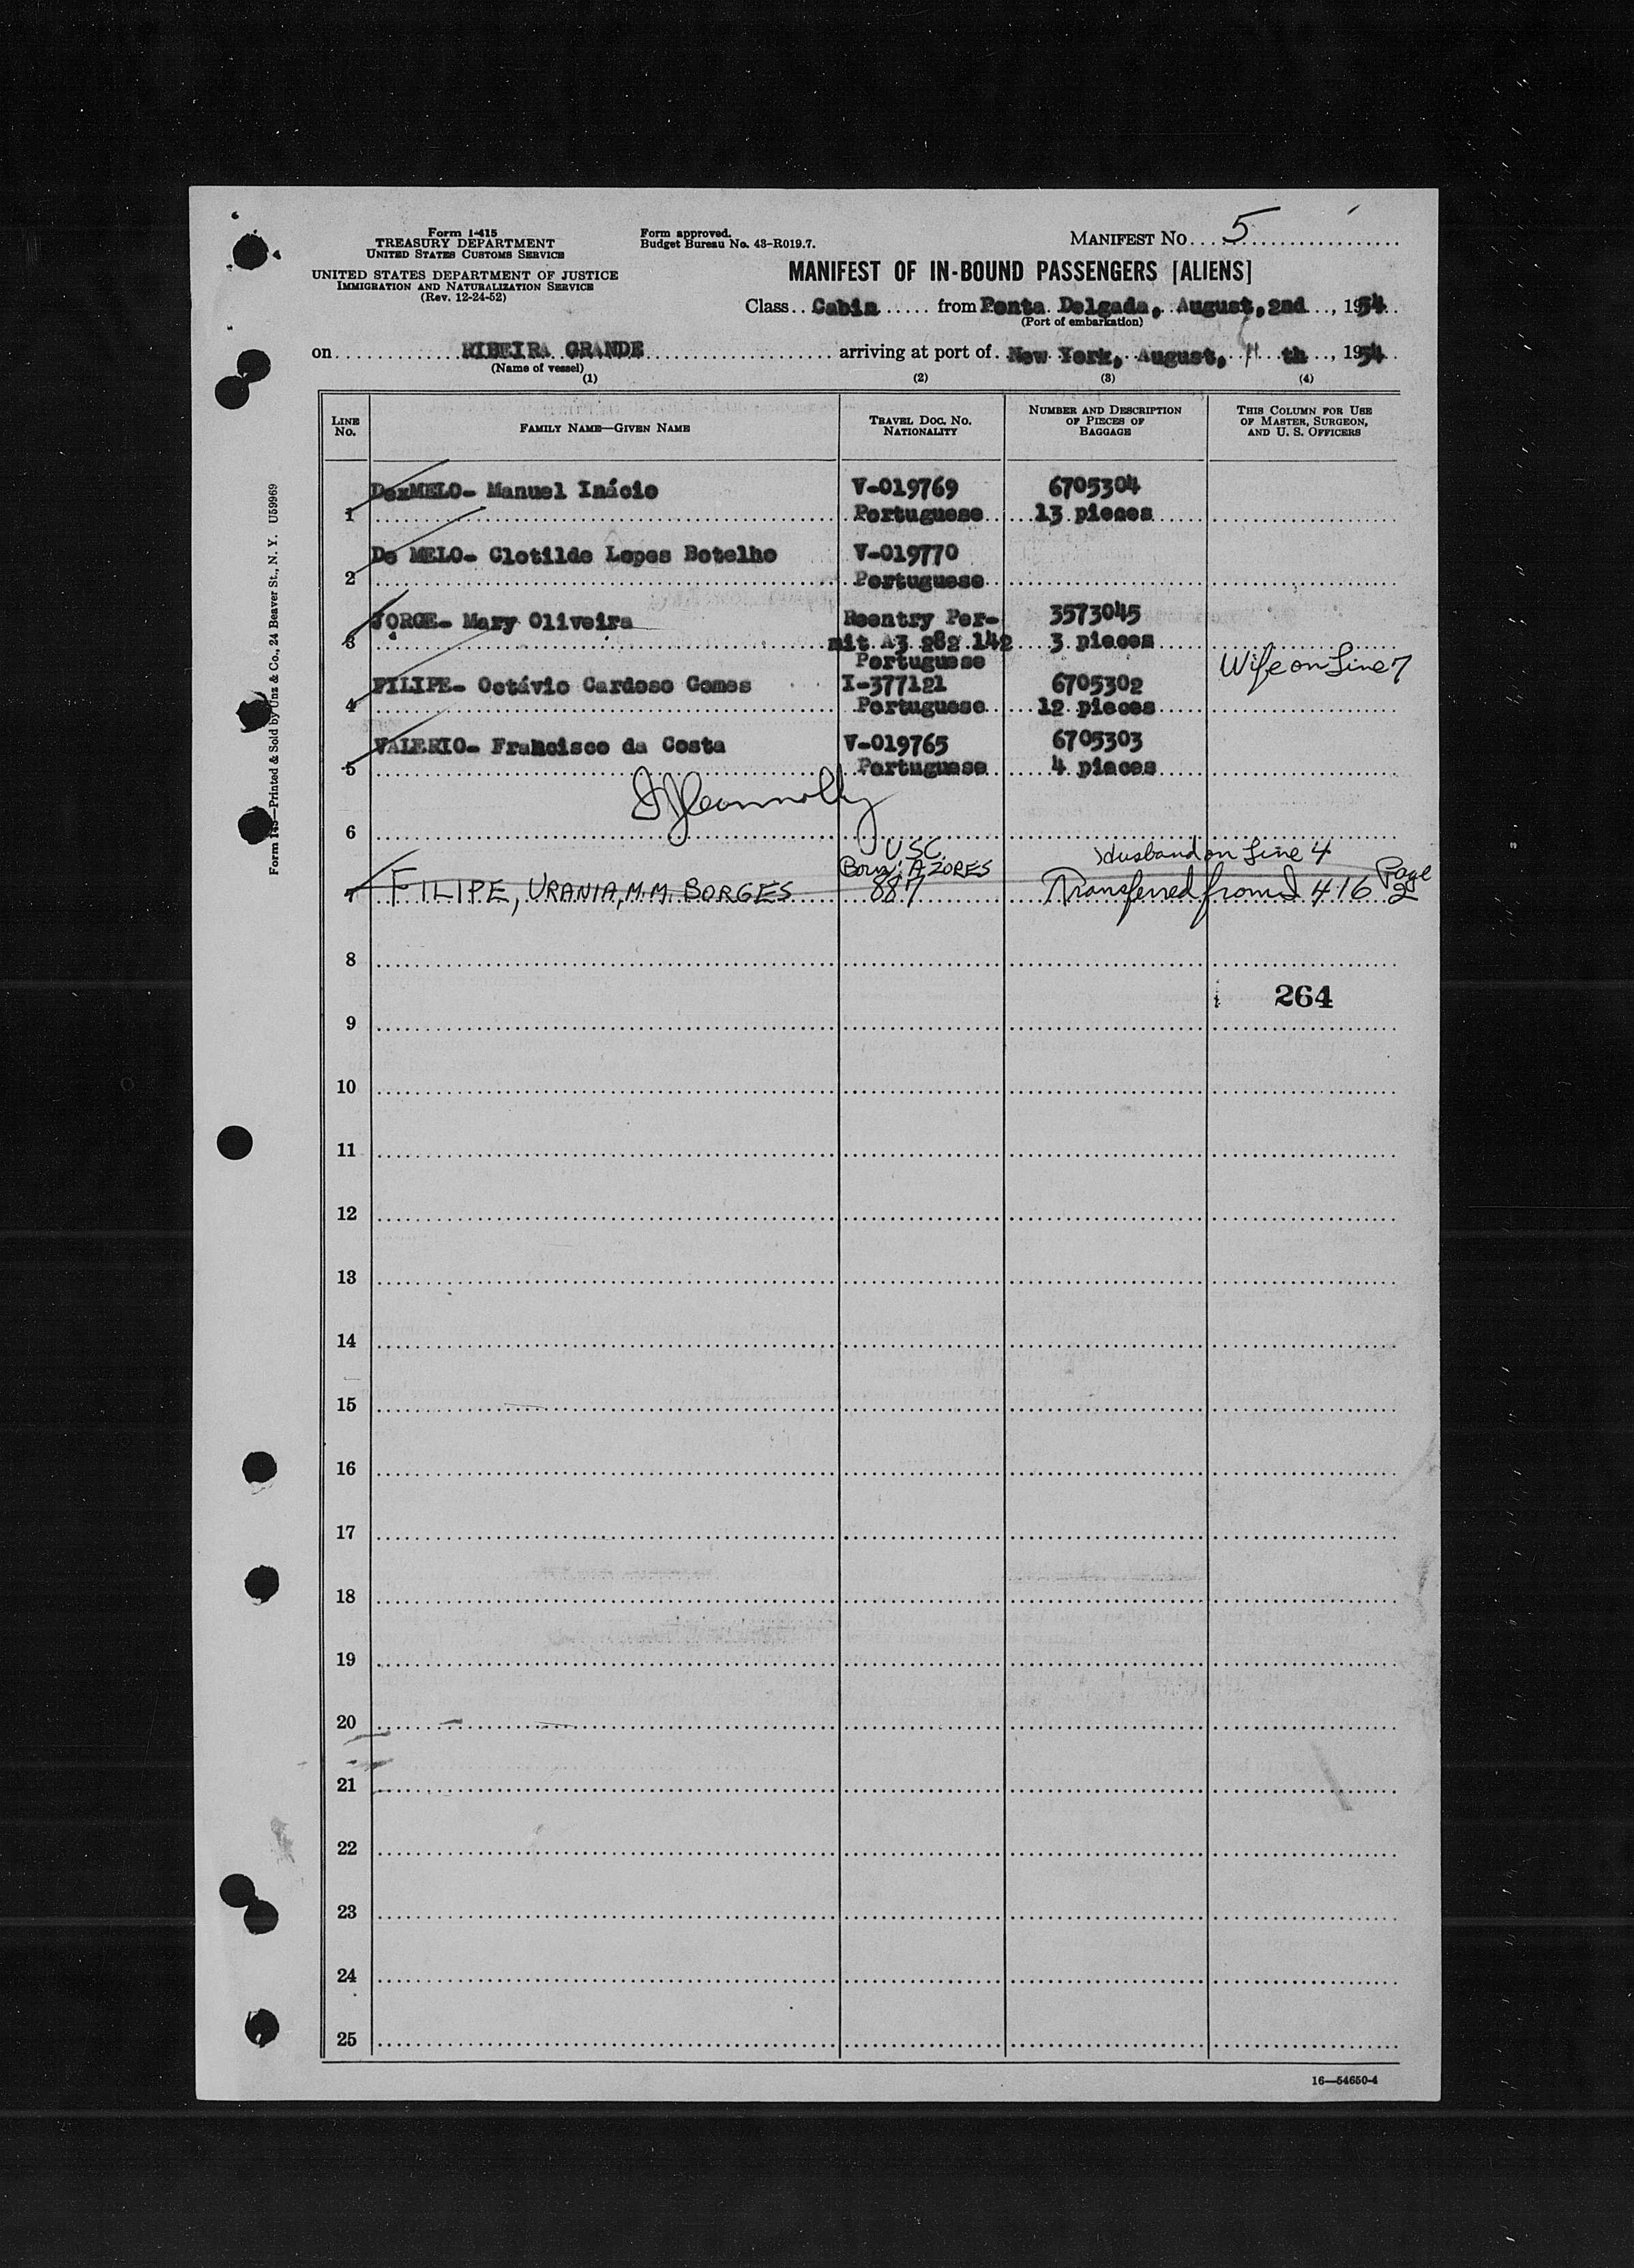 Form I-415
TREASURY DEPARTMENT
UNITED STATES CUSTOMS SERVICE
UNITED STATES DEPARTMENT OF JUSTICE
IMMIGRATION AND NATURALIZATION SERVICE
(Rev. 12-24-52)
Form approved.
Budget Bureau No. 43-R019.7.
MANIFEST No. 5
MANIFEST OF IN-BOUND PASSENGERS [ALIENS]
Class Cabin from Ponta Delgada, August, 2nd, 1954
(Port of embarkation)
on RIBEIRA GRANDE arriving at port of New York, August, th, 1954
(Name of vessel)
(1) (2) (3) (4)
LINE No. FAMILY NAME—GIVEN NAME TRAVEL DOC. NO. NATIONALITY NUMBER AND DESCRIPTION OF PIECES OF BAGGAGE THIS COLUMN FOR USE OF MASTER, SURGEON, AND U. S. OFFICERS
DexMELO- Manuel Inácio V-019769 6705304
1 Portuguese 13 pieces
De MELO- Clotilde Lopes Botelho V-019770
2 Portuguese
JORGE- Mary Oliveira Reentry Per- 3573045
3 mit A3 282 142 3 pieces
Portuguese Wife on Line 7
FILIPE- Octávio Cardoso Gomes I-377121 6705302
4 Portuguese 12 pieces
VALERIO- Francisco da Costa V-019765 6705303
5 Portuguese 4 pieces
Connolly
6
USC. Husband on Line 4
Born: AZORES
7 FILIPE, URANIA, M.M. BORGES 887 Transferred from I 416 Page 2
8
264
9
10
11
12
13
14
15
16
17
18
19
20
21
22
23
24
25
16—54650-4
Form 145—Printed & Sold by Unz & Co., 24 Beaver St., N. Y. U59969